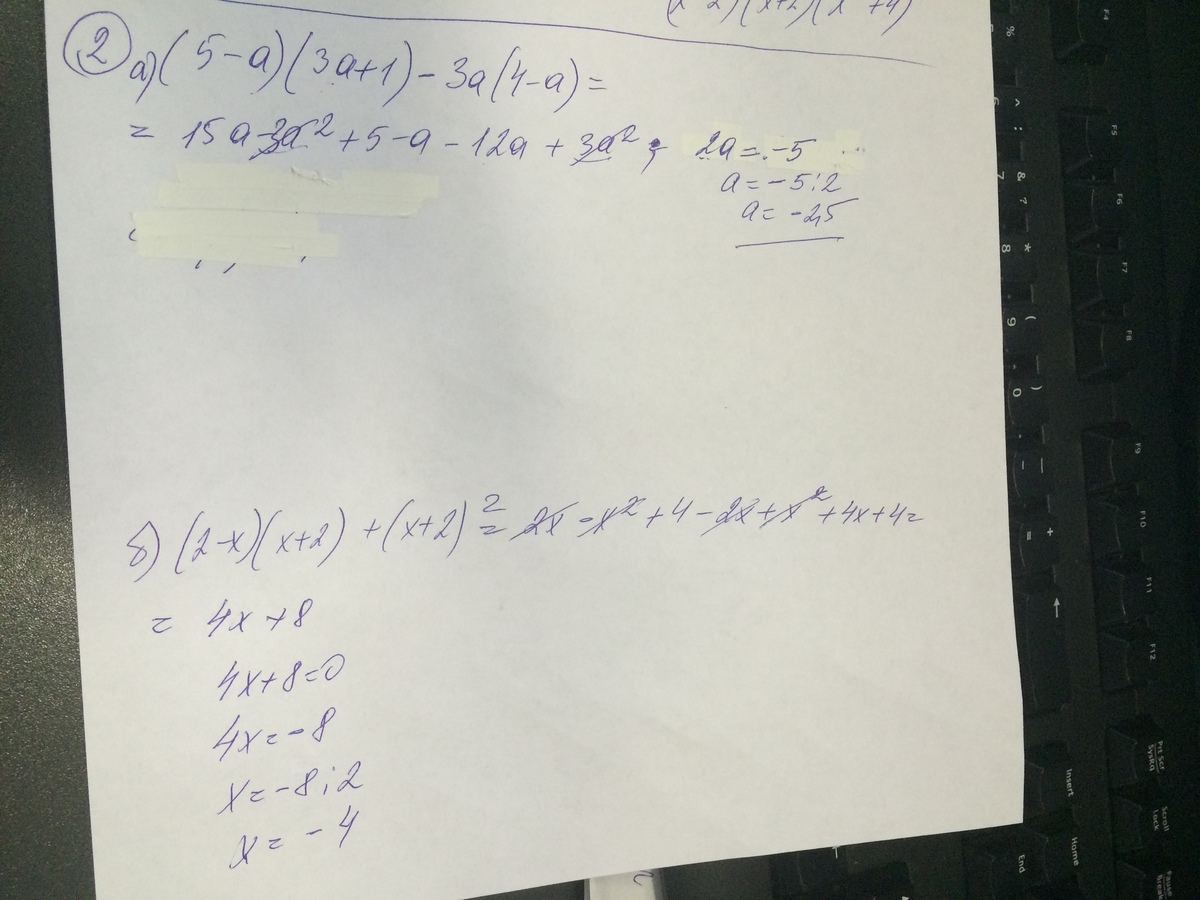 (x+2)(x +4)
② а) (5-a)(3a+1) - 3a(4-a) =
= 15a-3a² + 5 - a - 12a + 3a² =
2a = -5
a = -5:2
a = -2,5
б) (2-x)(x+2) + (x+2)² = 2x - x² + 4 - 2x + x² + 4x + 4 =
= 4x + 8
4x + 8 = 0
4x = -8
x = -8:2
x = -4
%
^
:
&
?
*
(
)
6
7
8
9
0
-
_
=
+
←
F4
F5
F6
F7
F8
F9
F10
F11
F12
Prt Scr
SysRq
Scroll
Lock
Pause
Break
Insert
Home
End